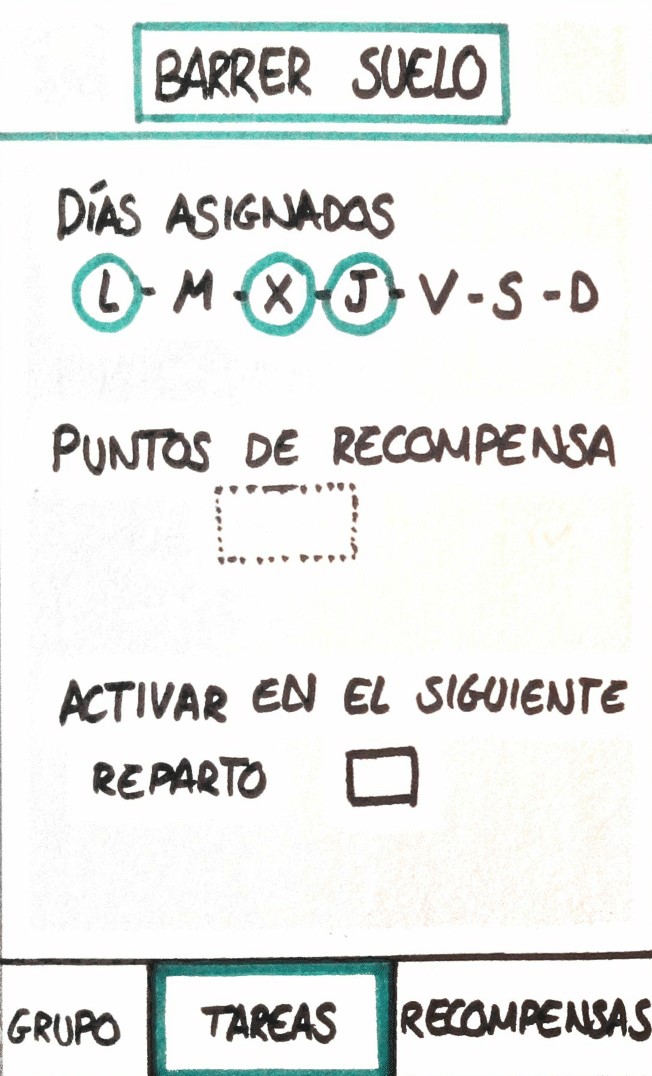 BARRER SUELO
DÍAS ASIGNADOS
L - M - X - J - V - S - D
PUNTOS DE RECOMPENSA
ACTIVAR EN EL SIGUIENTE
REPARTO
GRUPO TAREAS RECOMPENSAS